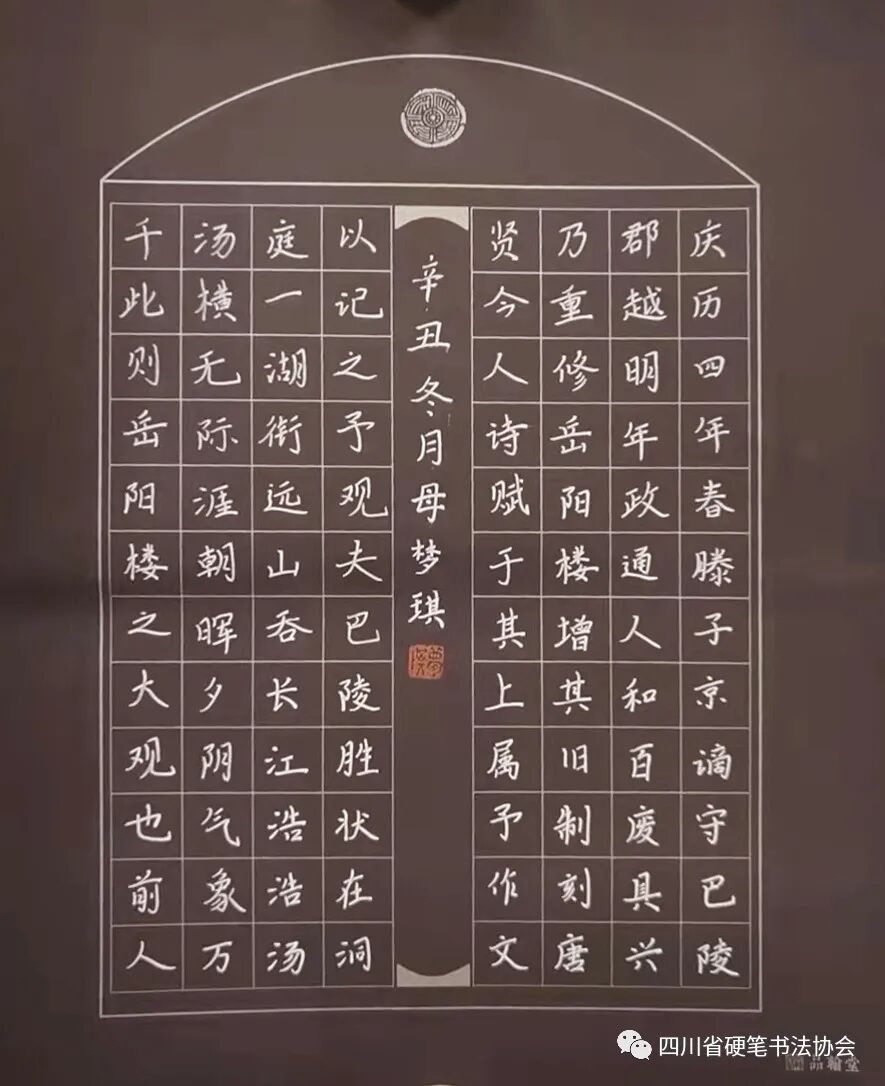 庆历四年春滕子京谪守巴陵
郡越明年政通人和百废具兴
乃重修岳阳楼增其旧制刻唐
贤今人诗赋于其上属予作文
辛丑冬月母梦琪
以记之予观夫巴陵胜状在洞
庭一湖衔远山吞长江浩浩汤
汤横无际涯朝晖夕阴气象万
千此则岳阳楼之大观也前人
四川省硬笔书法协会
品翰堂